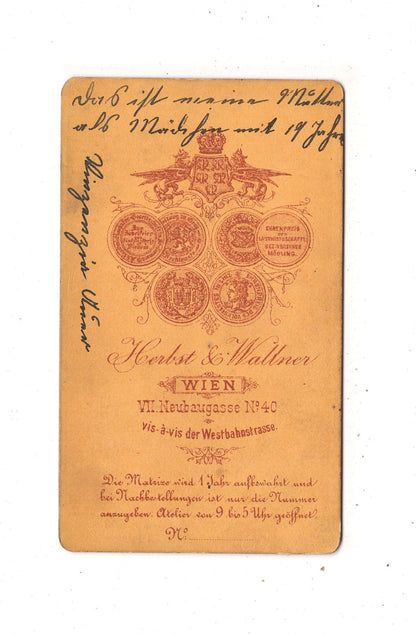 Das ist meine Mutter
als Mädchen mit 19 Jahre
EHRENPREIS
DER
LANDWIRTHSCHAFTL.
BEZ.VEREINES
MÖDLING.
Herbst & Wallner
WIEN
VII. Neubaugasse No 40
vis-à-vis der Westbahnstrasse.
Die Matrize wird 1 Jahr aufbewahrt und
bei Nachbestellungen ist nur die Nummer
anzugeben. Atelier von 9 bis 5 Uhr geöffnet.
No